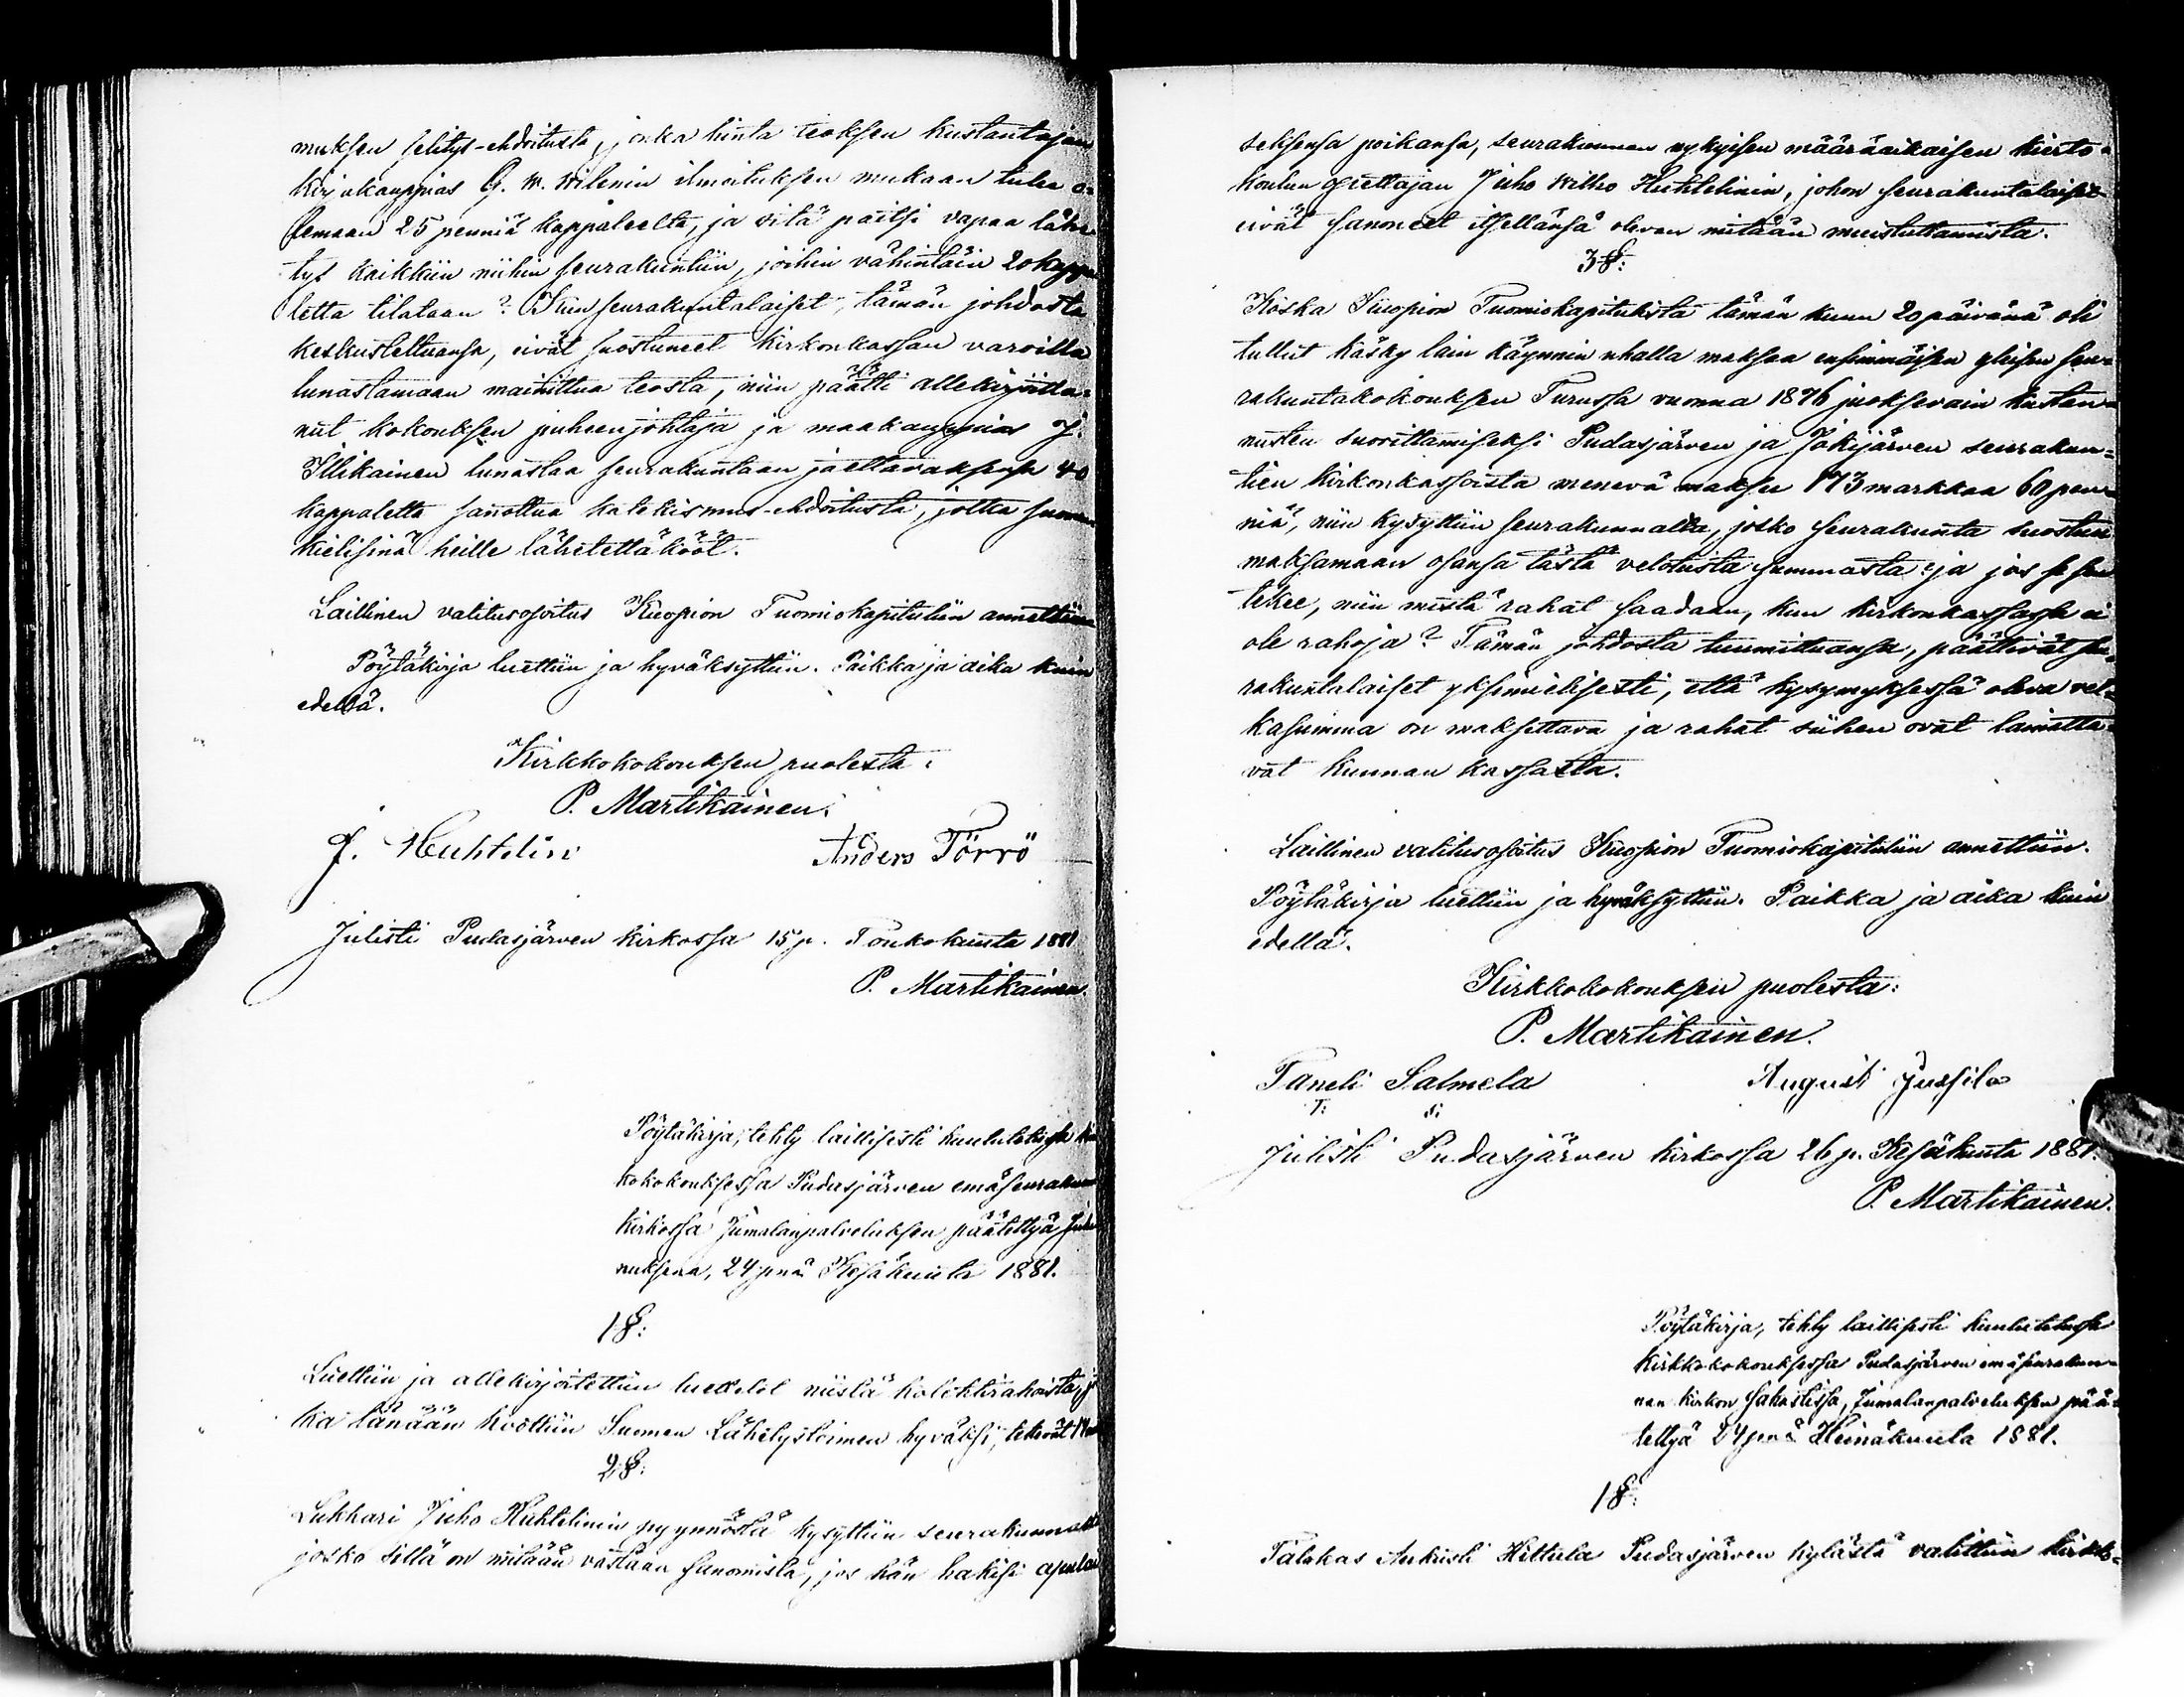 muksen selitys-ehdoitusta, jonka hinta teoksen kustantajan
kirjakauppias G. W. Wilenin ilmoituksen mukaan tulee o-
lemaan 25 penniä kappaleelta, ja sitä paitsi vapaa lähe-
tys kaikkiin niihin seurakuntiin, joihin vähintäin 20 kappa
letta tilataan? Kun seurakuntalaiset, tämän johdosta
keskusteltuansa, eivät suostuneet kirkonkassan varoilla
lunastamaan mainittua teosta, niin päätti allekirjoitta-
nut kokouksen puheenjohtaja ja maakauppias J.
Illikainen lunastaa seurakuntaan jaettavaksensa 40
kappaletta sanottua katekismus-ehdoitusta, jotka suomen
kielisinä heille lähetettäkööt.
Laillinen valitusosoitus Kuopion Tuomiokapituliin annettiin
Pöytäkirja luettiin ja hyväksyttiin. Paikka ja aika kuin
edellä.
Kirkkokokouksen puolesta:
P. Martikainen.
J. Huhtelin Anders Törrö
Julisti Pudasjärven kirkossa 15 p. Toukokuuta 1881
P. Martikainen.
Pöytäkirja, tehty laillisesti kuulutetussa kirk
kokokouksessa Pudasjärven emäseurakunnan
kirkossa Jumalanpalveluksen päätettyä Juhan
nuksena, 24 pnä Kesäkuuta 1881.
1 §:
Luettiin ja allekirjoitettiin luettelot niistä kolehtirahoista, jo
ka tänään koottiin Suomen Lähetystoimen hyväksi, tekevät
2 §:
Lukkari Juho Huhtelinin pyynnöstä kysyttiin seurakunnalta
josko sillä on mitään vastaan sanomista, jos hän hakisi apulai
seksensa poikansa, seurakunnan nykyisen määräaikaisen kierto-
koulun opettajan Juho Wilho Huhtelinin, johon seurakuntalaiset
eivät sanoneet itsellänsä olevan mitään muistuttamista.
3 §:
Koska Kuopion Tuomiokapitulista tämän kuun 20 päivänä oli
tullut käsky lain käynnin uhalla maksaa ensimmäisen yleisen seu-
rakuntakokouksen Turussa vuonna 1876 juoksevain kustan-
nusten suorittamiseksi Pudasjärven ja Jokijärven seurakun-
tien kirkonkassoista menevä maksu 173 markkaa 60 pen-
niä, niin kysyttiin seurakunnalta, josko seurakunta suostuu
maksamaan osansa tästä velotusta summasta: ja jos se sen
tekee, niin mistä rahat saadaan, kun kirkonkassassa ei
ole rahoja? Tämän johdosta tuumittuansa, päättivät seu-
rakuntalaiset yksimielisesti, että kysymyksessä oleva vel-
kasumma on maksettava ja rahat siihen ovat lainatta-
vat kunnan kassasta.
Laillinen valitusosoitus Kuopion Tuomiokapituliin annettiin.
Pöytäkirja luettiin ja hyväksyttiin. Paikka ja aika kuin
edellä.
Kirkkokokouksen puolesta:
P. Martikainen.
Taneli Salmela Augusti Jussila
T: S:
Julisti Pudasjärven kirkossa 26 p. Kesäkuuta 1881.
P. Martikainen.
Pöytäkirja, tehty laillisesti kuulutetussa
kirkkokokouksessa Pudasjärven emäseurakun-
nan kirkon sakastissa, Jumalanpalveluksen pää-
tettyä 24 pnä Heinäkuuta 1881.
1 §:
Talokas Aukusti Hiltula Pudasjärven kylästä valittiin kirkko-